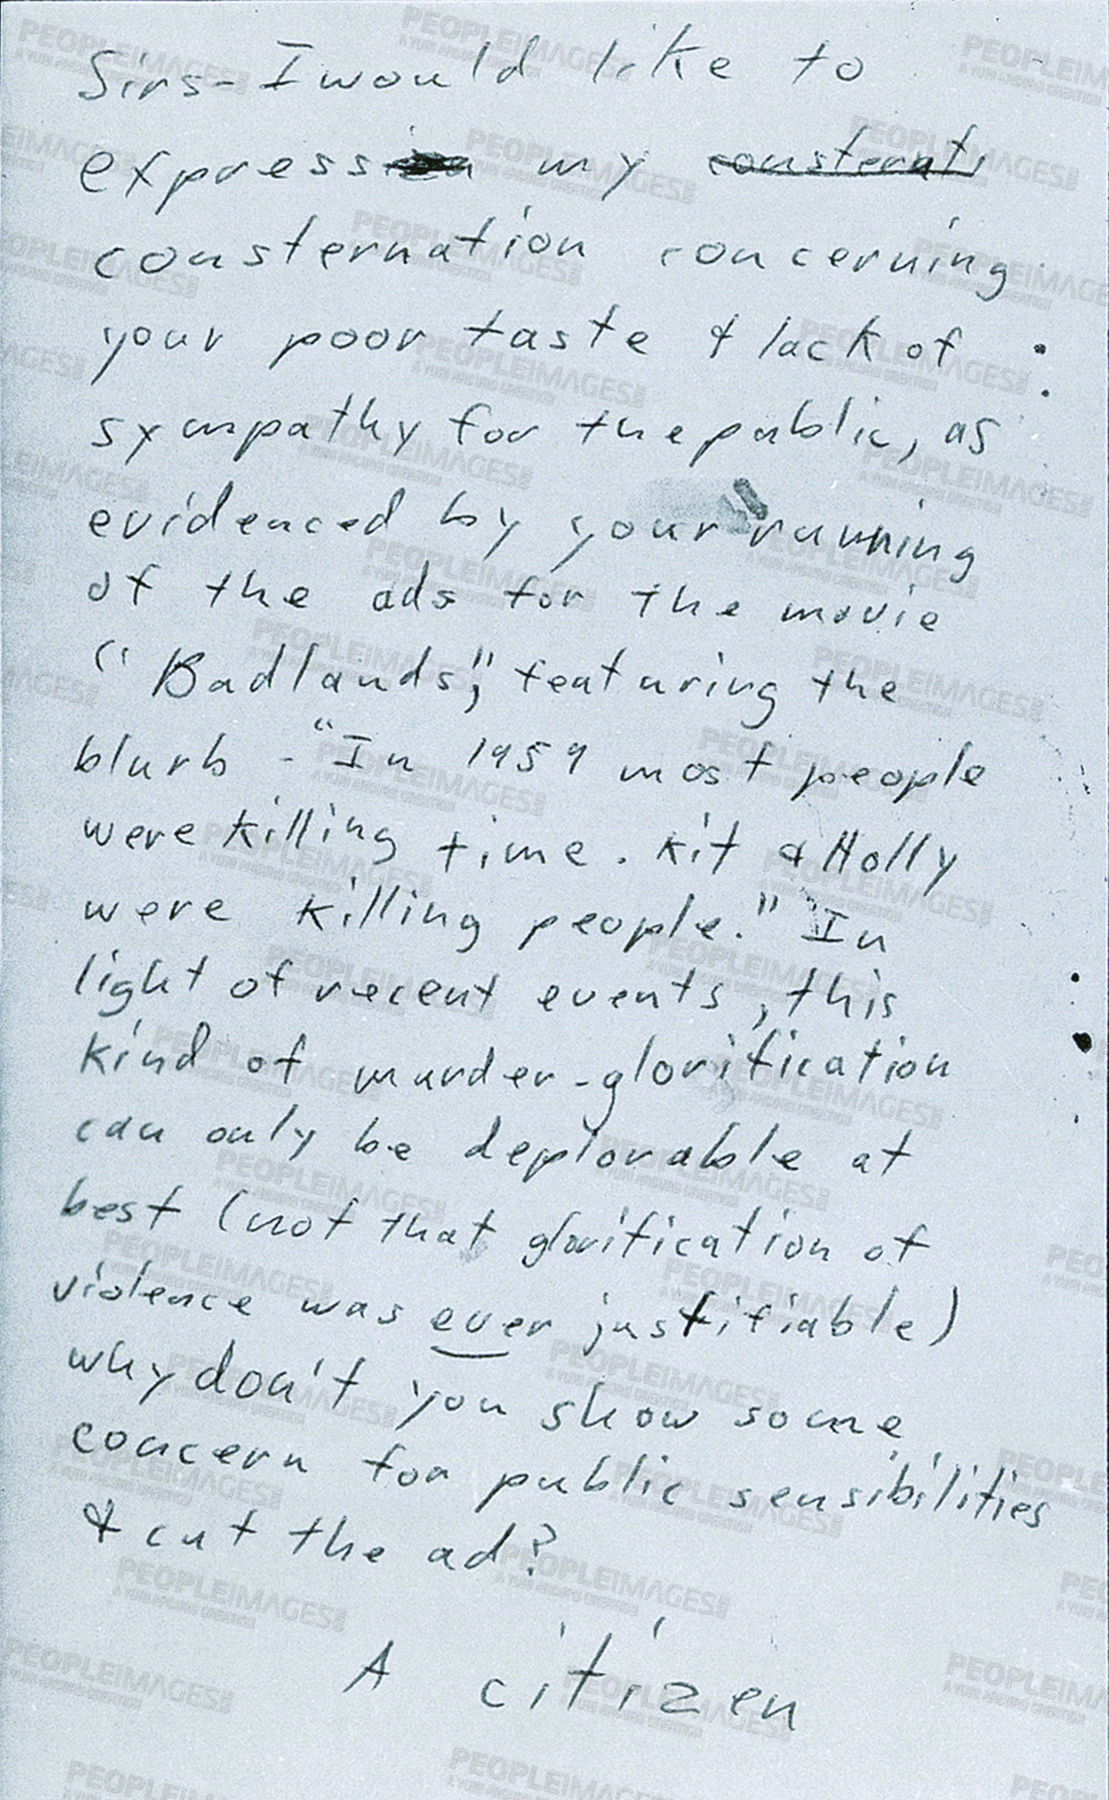 Sirs- I would like to
express my consternati
consternation concerning
your poor taste & lack of
sympathy for the public, as
evidenced by your running
of the ads for the movie
"Badlands," featuring the
blurb - "In 1959 most people
were killing time. Kit & Holly
were killing people." In
light of recent events, this
kind of murder-glorification
can only be deplorable at
best (not that glorification of
violence was ever justifiable)
why don't you show some
concern for public sensibilities
& cut the ad?
A citizen
PEOPLEIMAGES
A YURI ARCURS CREATION